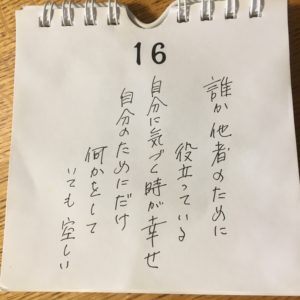 16
誰か他者のために
役立っている
自分に気づく時が幸せ
自分のためにだけ
何かをして
いても空しい